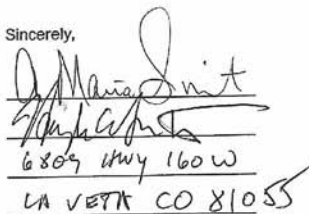 Sincerely,
Maria Smit
6809 HWY 160 W
LA VETA CO 81055